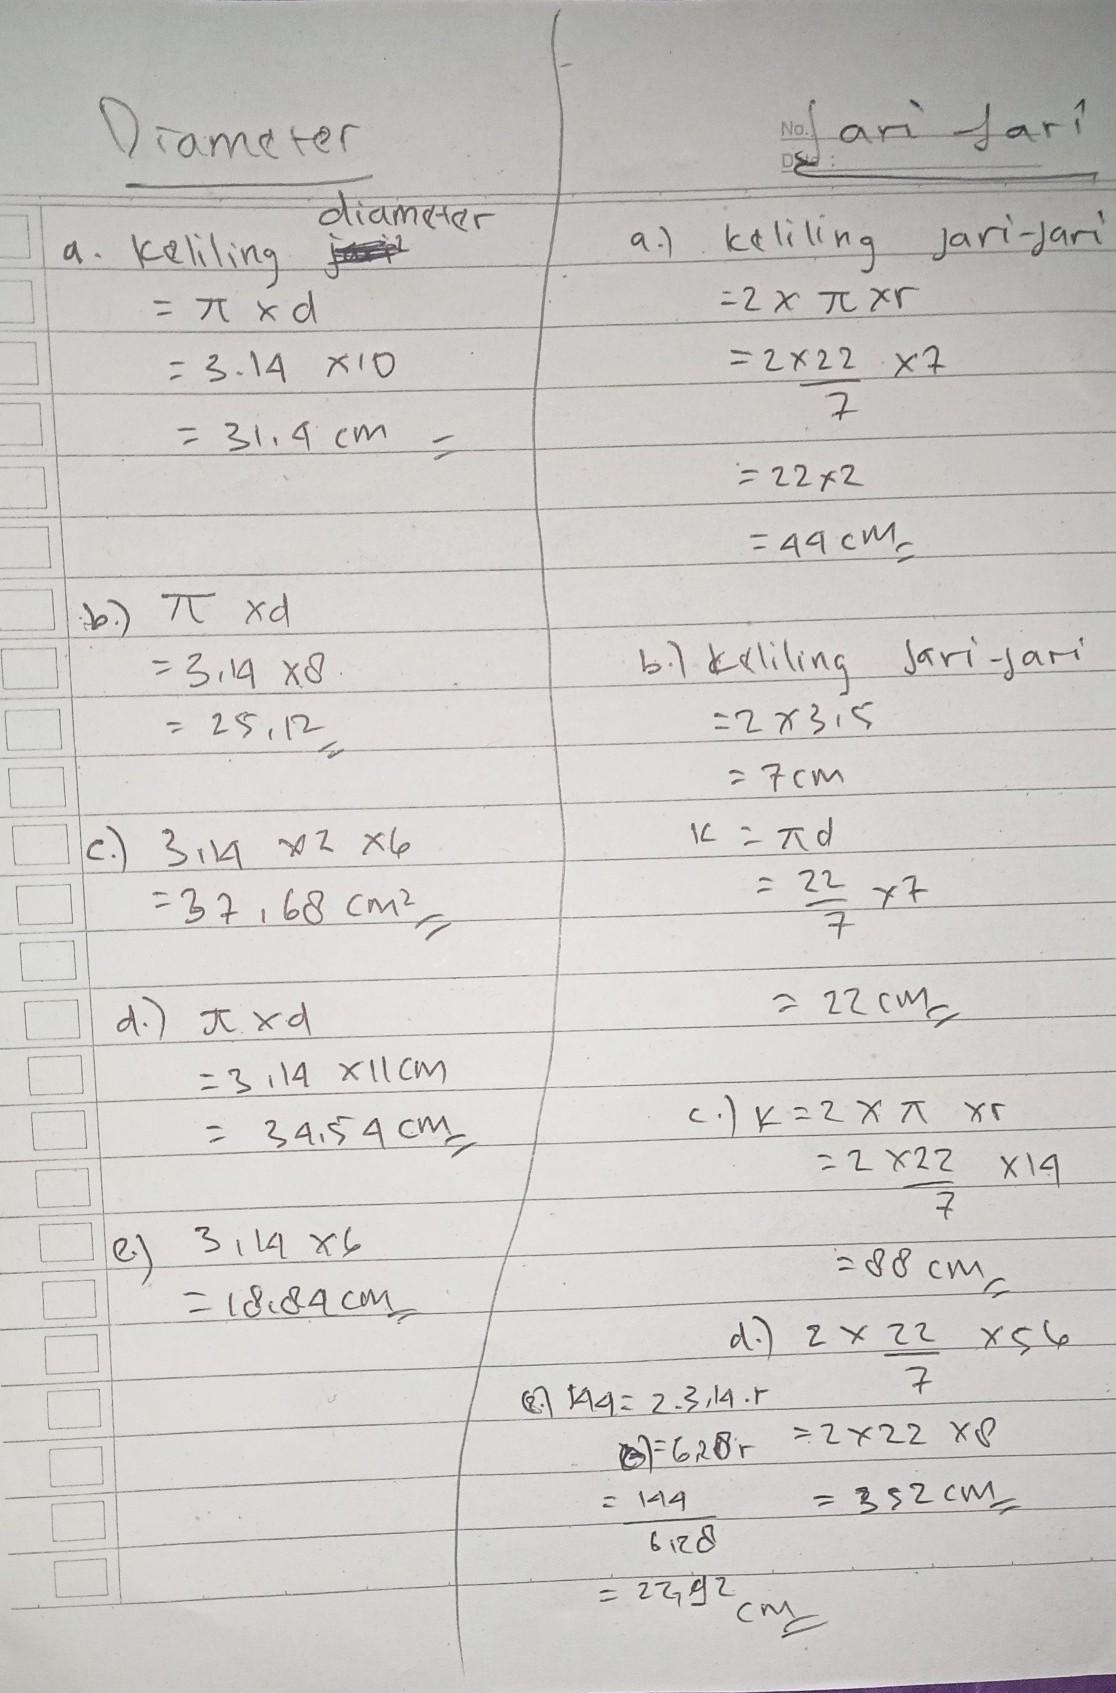 Diameter
a. Keliling diameter
= π x d
= 3.14 x10
= 31,4 cm
b.) π xd
= 3,14 x8
= 25,12
c.) 3,14 x2 x6
= 37,68 cm²
d.) π xd
= 3,14 x11cm
= 34,54 cm
e.) 3,14 x6
= 18,84 cm
No.
Jari-Jari
a.) keliling jari-jari
= 2 x π xr
= 2 x 22/7 x7
= 22x2
= 44 cm
b.) keliling Jari-jari
= 2 x 3,5
= 7cm
K = πd
= 22/7 x7
= 22 cm
c.) K = 2 x π xr
= 2 x 22/7 x14
= 88 cm
d.) 2 x 22/7 x56
= 2x22 x8
= 352 cm
e.) 144 = 2.3,14.r
= 6,28r
= 144/6,28
= 22,92 cm